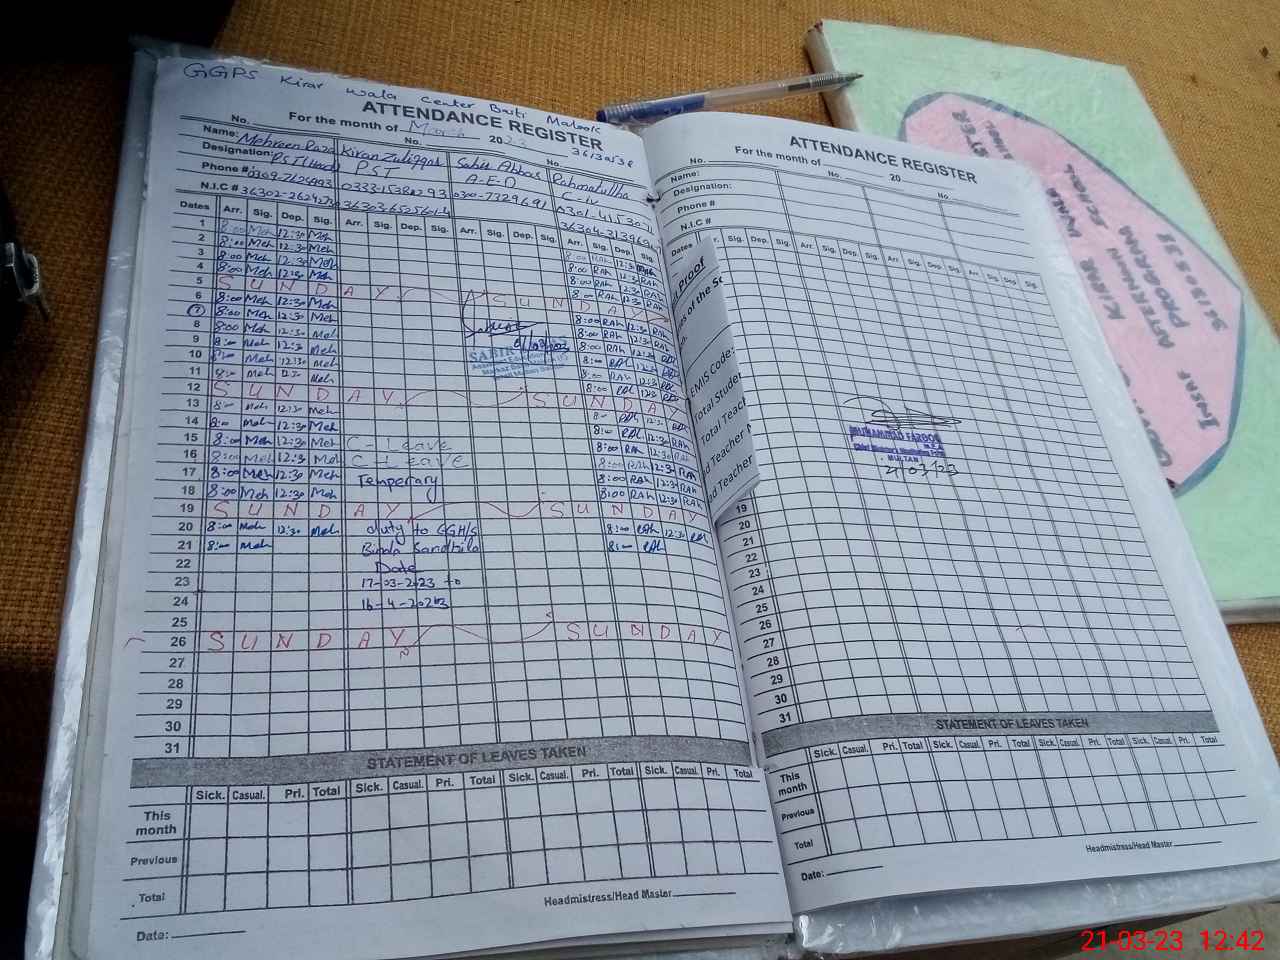 GGPS Kirar wala center Basti Malook
ATTENDANCE REGISTER
For the month of March 2023
36130538
No. No. No.
Name: Mehreen Raza Kiran Zulfiqar Sabir Abbas Rahmatullha
Designation: PST (Head) PST A-E-O C-iv
Phone #
N.I.C #
Dates Arr. Sig. Dep. Sig. Arr. Sig. Dep. Sig. Arr. Sig. Dep. Sig. Arr. Sig. Dep. Sig.
1 8:00 Meh 12:30 Meh 8:00 RAh 12:30
2 8:00 Meh 12:30 Meh 8:00 RAh 12:30
3 8:00 Meh 12:30 Meh 8:00 RAh 12:30
4 8:00 Meh 12:30 Meh 8:00 RAh 12:30
5 SUNDAY SUNDAY
6 8:00 Meh 12:30 Meh 8:00 RAh 12:30 RAh
7 8:00 Meh 12:30 Meh 8:00 RAh 12:30
8 8:00 Meh 12:30 Meh 8:00 RAh 12:30
9 8:00 Meh 12:30 Meh 8:00 RAh 12:30
SABIR
10 8:00 Meh 12:30 Meh 8:00 RAh 12:30
11 8:00 Meh 12:30 Meh 8:00 RAh 12:30
12 SUNDAY SUNDAY
13 8:00 Meh 12:30 Meh 8:00 RAh 12:30
14 8:00 Meh 12:30 Meh 8:00 RAh 12:30
15 8:00 Meh 12:30 Meh C-Leave 8:00 RAh 12:30 RAh
16 8:00 Meh 12:30 Meh C-Leave 8:00 RAh 12:30 RAh
17 8:00 Meh 12:30 Meh Tempertary 8:00 RAh 12:30 RAh
18 8:00 Meh 12:30 Meh 8:00 RAh 12:30 RAh
19 SUNDAY SUNDAY
20 8:00 Meh 12:30 Meh duty to GGH/S 8:00 RAh 12:30 RAh
21 8:00 Meh Binda Sandhila 8:00 RAh
22 Date
23 17-03-2023 to
24 16-4-2023
25
26 SUNDAY SUNDAY
27
28
29
30
31
STATEMENT OF LEAVES TAKEN
Sick. Casual. Pri. Total Sick. Casual. Pri. Total Sick. Casual. Pri. Total
This month
Previous
Total
Headmistress/Head Master
Date:
ATTENDANCE REGISTER
For the month of 20
No. No. No.
Name:
Designation:
Phone #
N.I.C #
Dates Arr. Sig. Dep. Sig. Arr. Sig. Dep. Sig. Arr. Sig. Dep. Sig. Arr. Sig. Dep. Sig.
Proof
of the Sc
EMIS Code:
Total Stude
Total Teac
ad Teacher N
ad Teacher
MUHAMMAD FAROOQ
MULTAN
21/03/23
19
20
21
22
23
24
25
26
27
28
29
30
31
STATEMENT OF LEAVES TAKEN
Sick. Casual. Pri. Total Sick. Casual. Pri. Total Sick. Casual. Pri. Total Sick. Casual. Pri. Total
This month
Previous
Total
Headmistress/Head Master
Date:
KIRAR WALA
AFTERNOON SCHOOL
INSAF PROGRAM
36130538
21-03-23 12:42